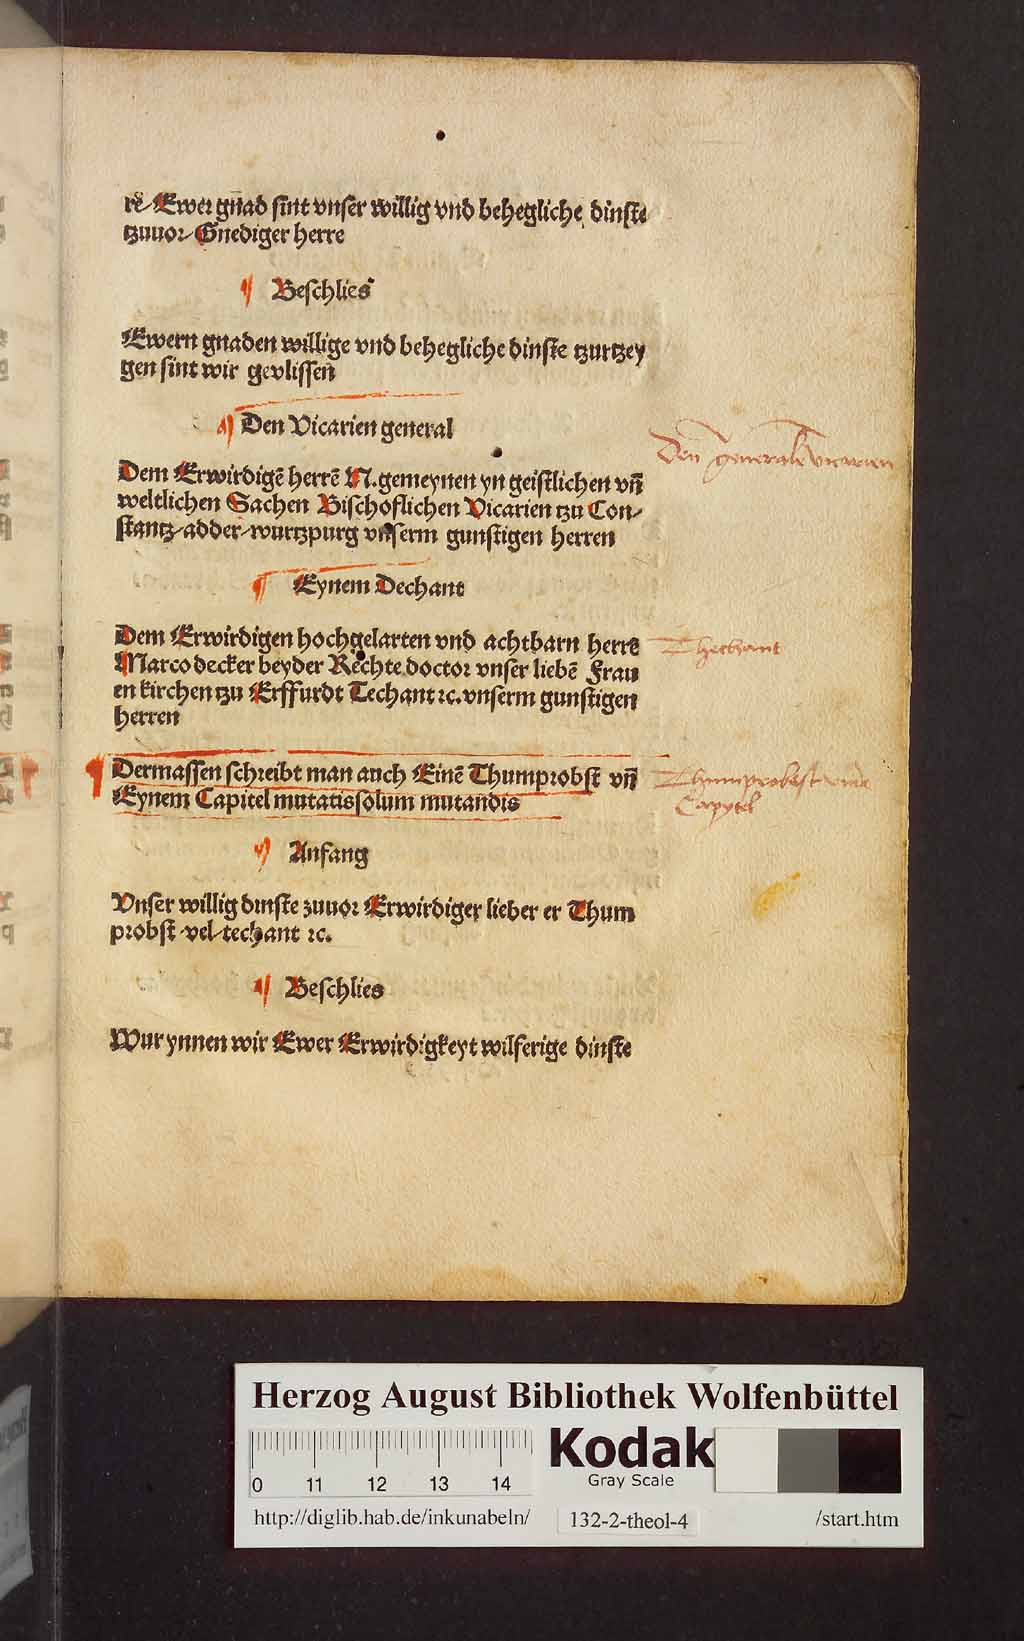 rē Ewer gnad sint vnser willig vnd behegliche dinste
tzuuor Gnediger herre
¶ Beschlies
Ewern gnaden willige vnd behegliche dinste tzurtzey
gen sint wir gevlissen
¶ Den Vicarien general
Den generale vicarien
Dem Erwirdigē herrē N. gemeynen yn geistlichen vn̄
weltlichen Sachen Bischoflichen Vicarien tzu Con/
stantz/adder/wurtzpurg vnserm gunstigen herren
¶ Eynem Dechant
Dem Erwirdigen hochgelarten vnd achtbarn herrē
Thechant
Marco decker beyder Rechte doctor vnser liebē Frau
en kirchen tzu Erffurdt Techant ꝛc. vnserm gunstigen
herren
¶ Dermassen schreibt man auch Einē Thumprobst vn̄
Thumprobst vnd
Eynem Capitel mutatis solum mutandis
Capytel
¶ Anfang
Vnser willig dinste zuuor Erwirdiger lieber er Thum
probst/vel/techant ꝛc.
¶ Beschlies
Wur ynnen wir Ewer Erwirdigkeyt wilferige dinste
Herzog August Bibliothek Wolfenbüttel
0 11 12 13 14
Kodak
Gray Scale
http://diglib.hab.de/inkunabeln/ 132-2-theol-4 /start.htm